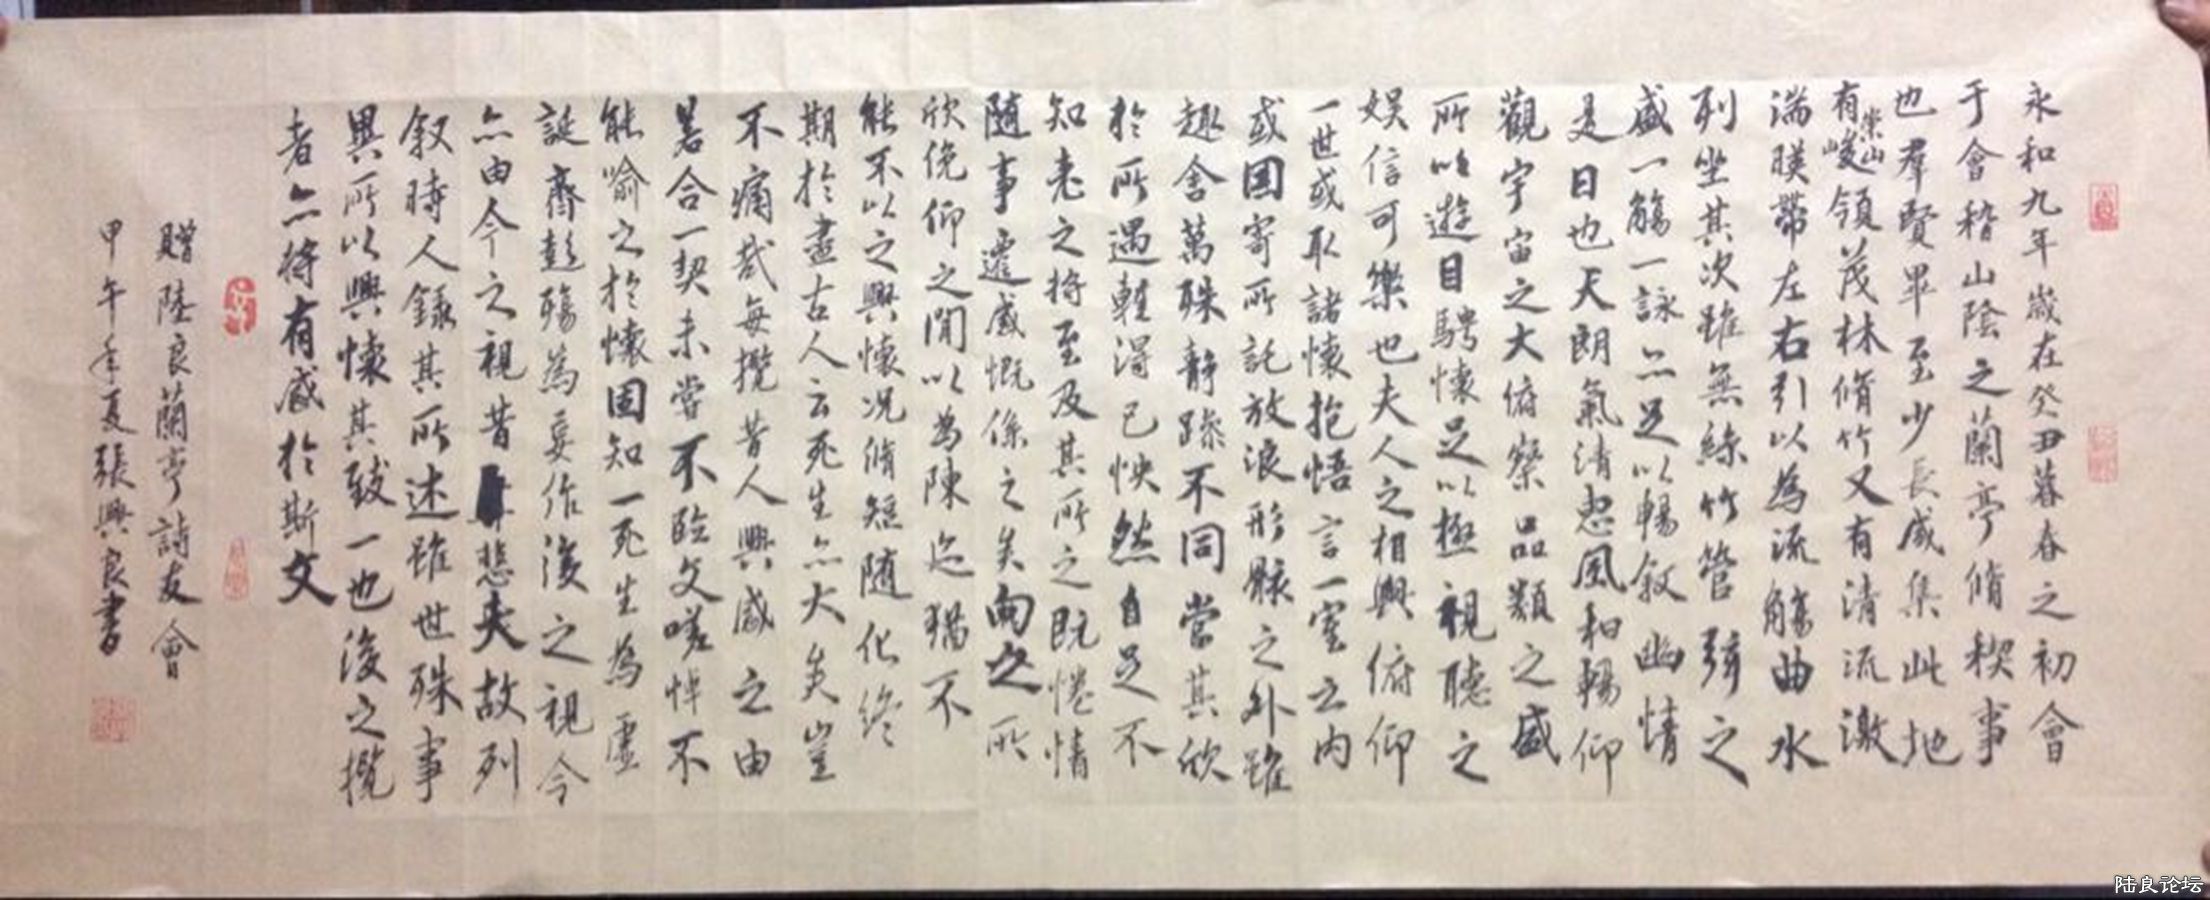 永和九年歲在癸丑暮春之初會
于會稽山陰之蘭亭脩稧事
也羣賢畢至少長咸集此地
有崇山峻領茂林脩竹又有清流激
湍暎帶左右引以為流觴曲水
列坐其次雖無絲竹管弦之
盛一觴一詠亦足以暢敘幽情
是日也天朗氣清惠風和暢仰
觀宇宙之大俯察品類之盛
所以遊目騁懷足以極視聽之
娛信可樂也夫人之相與俯仰
一世或取諸懷抱悟言一室之內
或因寄所託放浪形骸之外雖
趣舍萬殊靜躁不同當其欣
於所遇輕得己怏然自足不
知老之將至及其所之既惓情
隨事遷感慨係之矣向之所
欣俛仰之間以為陳迹猶不
能不以之興懷況脩短隨化終
期於盡古人云死生亦大矣豈
不痛哉每攬昔人興感之由
若合一契未嘗不臨文嗟悼不
能喻之於懷固知一死生為虛
誕齊彭殤為妄作後之視今
亦由今之視昔悲夫故列
敘時人錄其所述雖世殊事
異所以興懷其致一也後之攬
者亦將有感於斯文
贈陸良蘭亭詩友會
甲午年夏張興良書
陆良论坛